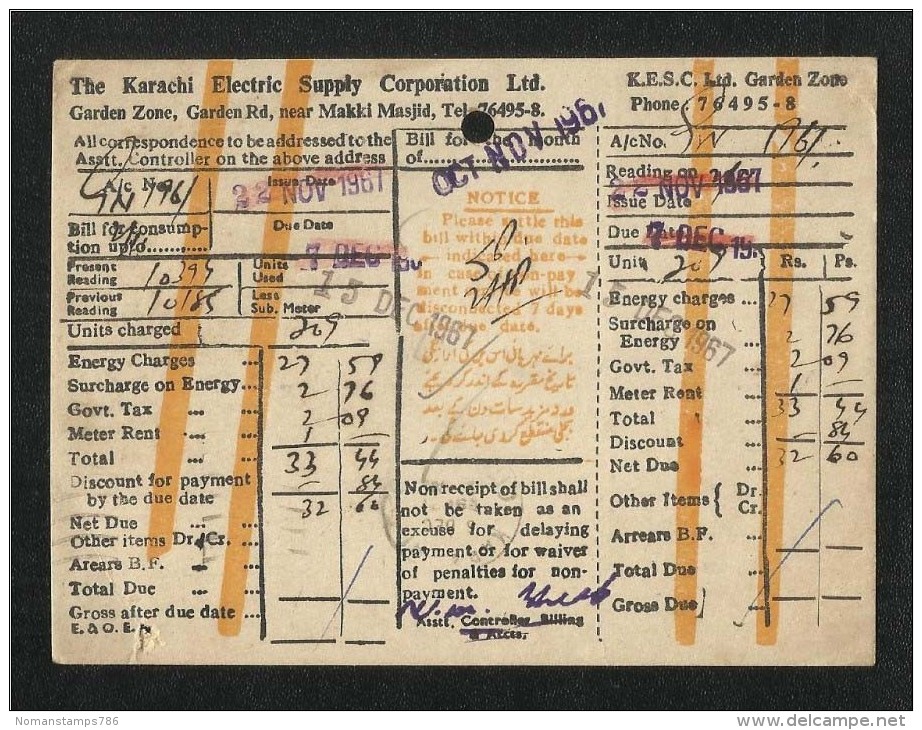 The Karachi Electric Supply Corporation Ltd.
Garden Zone, Garden Rd, near Makki Masjid, Tel. 76495-8.
All correspondence to be addressed to the
Asstt. Controller on the above address
A/c No.
Issue Date
22 NOV 1967
Bill for consump-
tion upto
Due Date
7 DEC
Present
Reading 10394
Units
Used
Previous
Reading 10185
Less
Sub. Meter
Units charged 209
Energy Charges ... 27 59
Surcharge on Energy... 2 76
Govt. Tax ... ... 2 09
Meter Rent ... 1 —
Total ... ... 33 44
Discount for payment
by the due date — 84
32 60
Net Due ...
Other items Dr./Cr.
Arears B.F. ...
Total Due ...
Gross after due date ...
E. & O. E.
Bill for the Month
of
OCT NOV 196
NOTICE
Please settle this
bill within due date
indicated here
In case of non-pay
ment service will be
disconnected 7 days
due date.
15 DEC 1967
Non receipt of bill shall
not be taken as an
excuse for delaying
payment or for waiver
of penalties for non-
payment.
Asstt. Controller Billing
& Accts.
K.E.S.C. Ltd. Garden Zone
Phone 76495-8
A/c No.
Reading on
22 NOV 1967
Issue Date
Due Date
7 DEC 19
Units 209 Rs. Ps.
Energy charges ... 27 59
Surcharge on
Energy ... 2 76
Govt. Tax ... 2 09
Meter Rent ... 1 —
Total ... 33 44
Discount ... — 84
Net Due ... 32 60
Other Items { Dr.
Cr.
Arrears B.F. ...
Total Due ...
Gross Due
DEC 1967
Nomanstamps786
www.delcampe.net